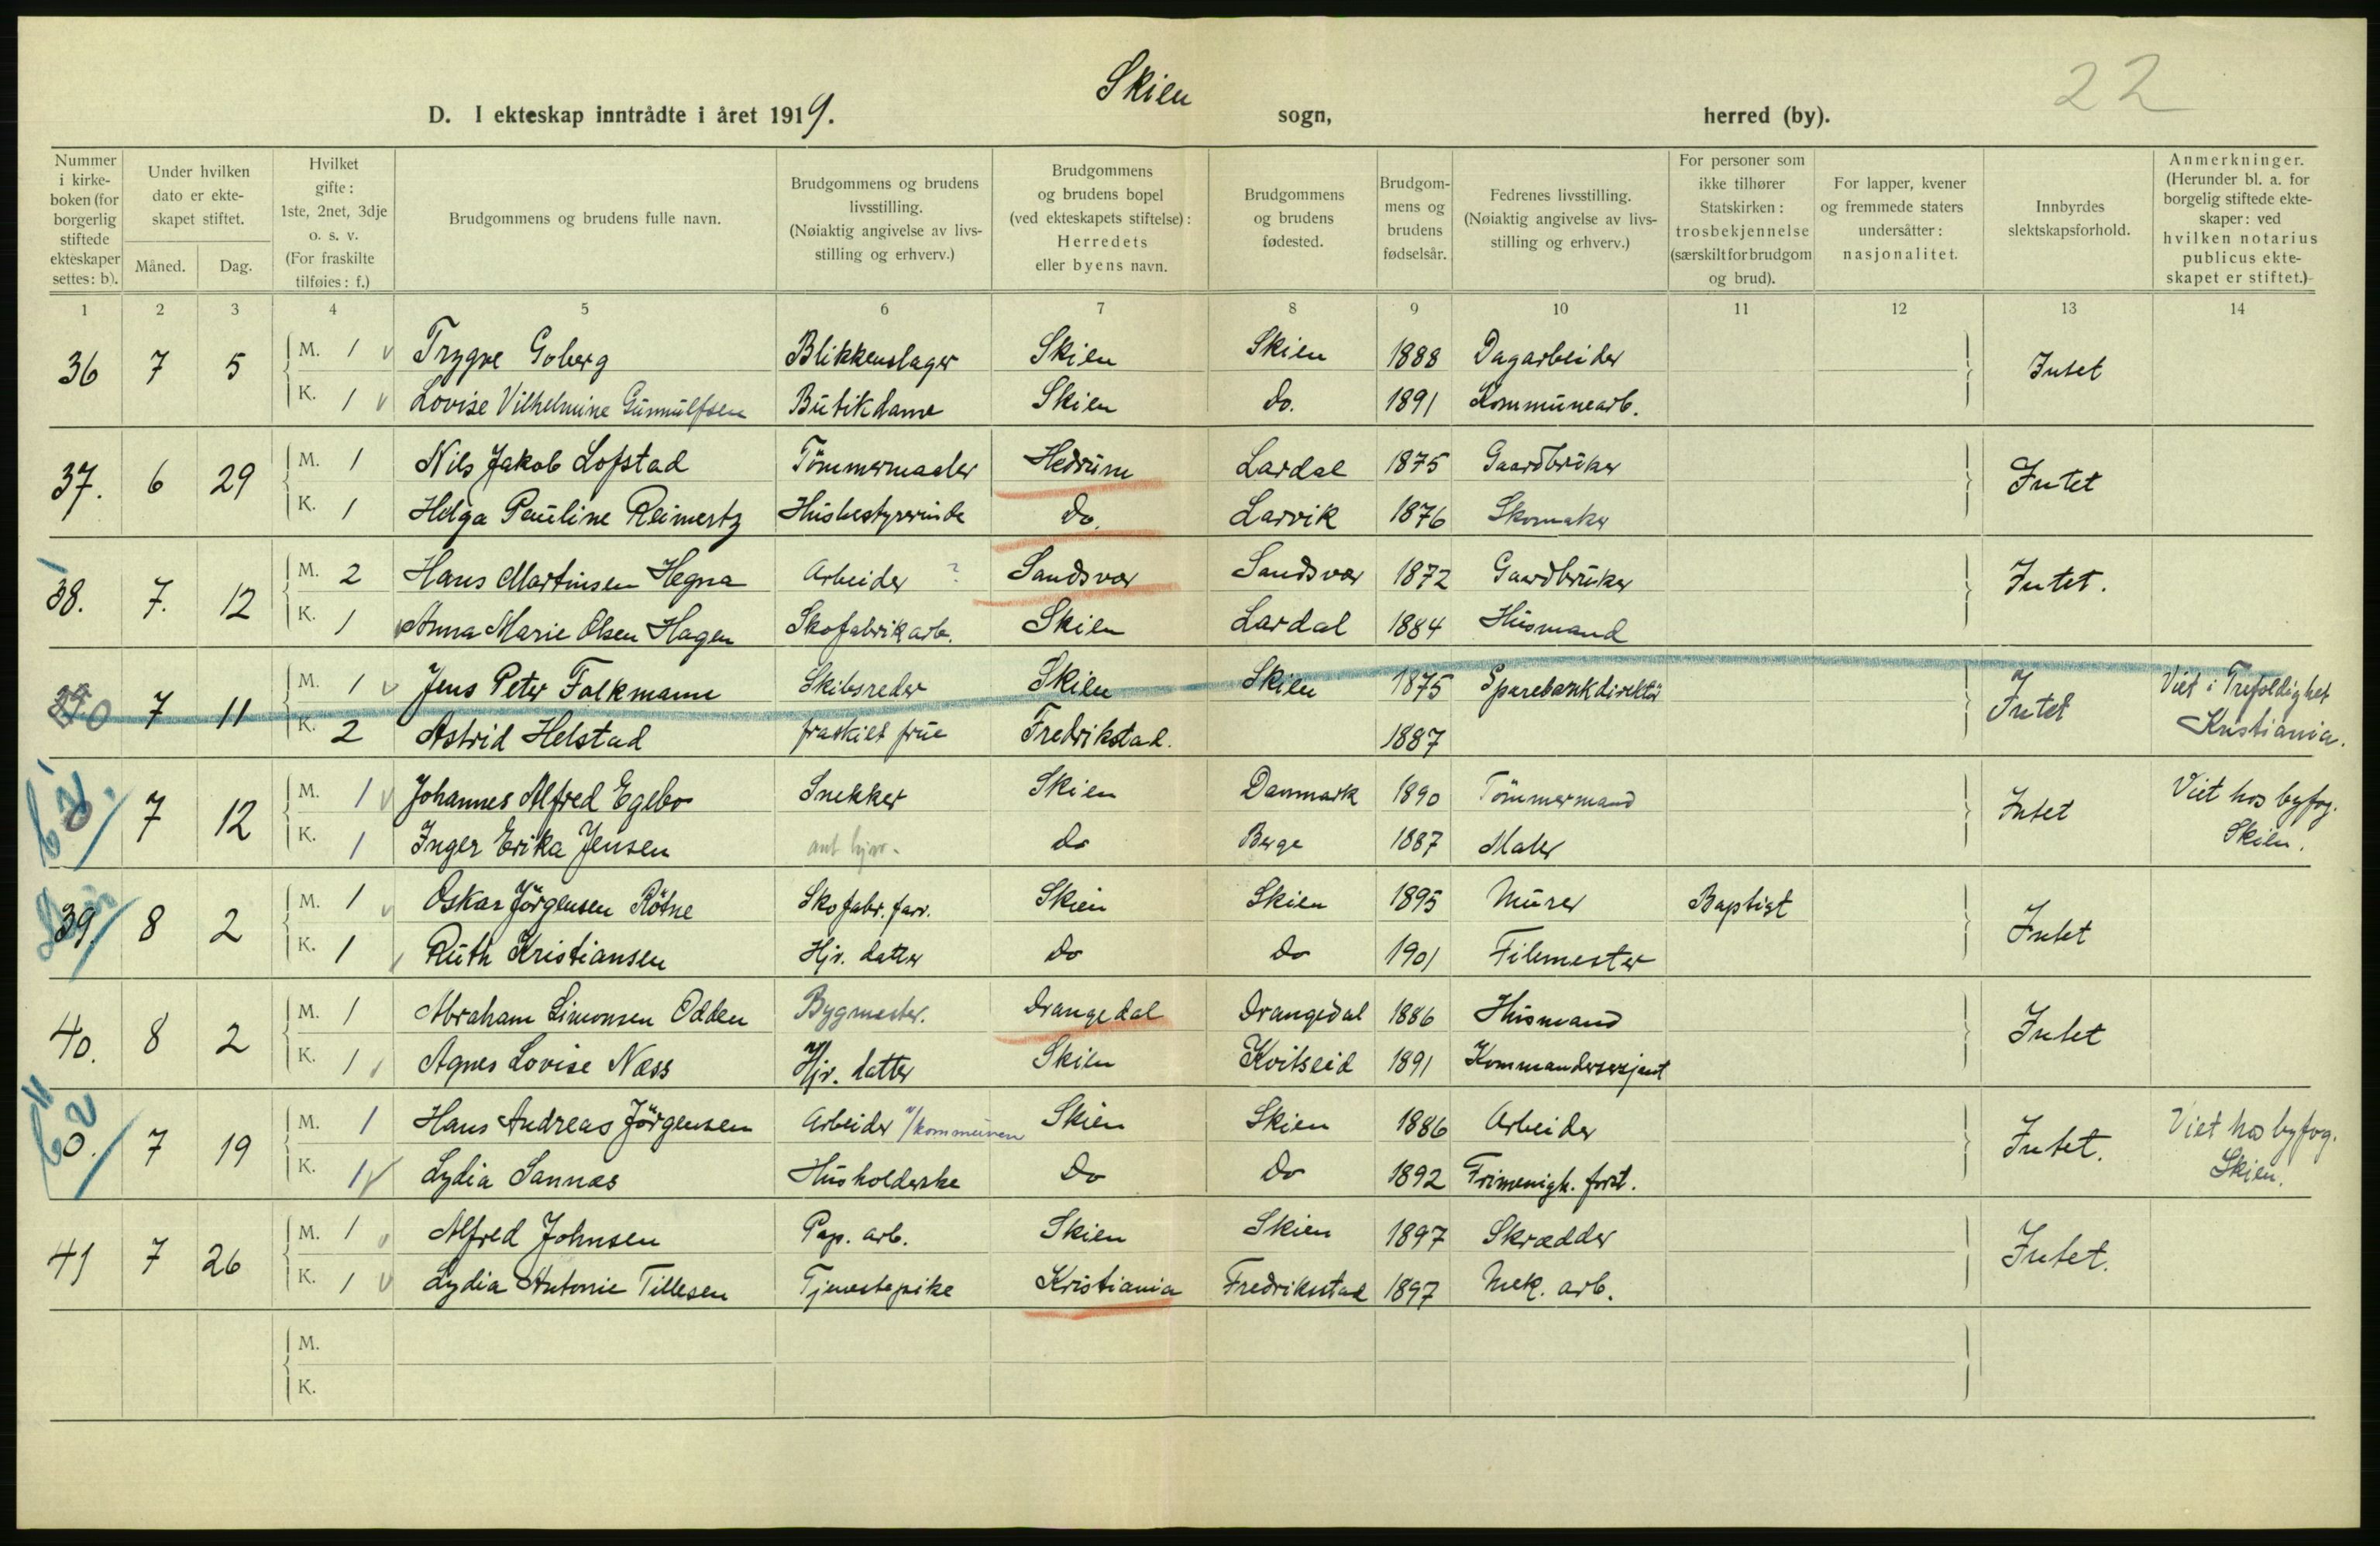 22
Skien
D. I ekteskap inntrådte i året 1919. sogn, herred (by).
Nummer i kirkeboken (for borgerlig stiftede ekteskaper settes: b).
Under hvilken dato er ekteskapet stiftet.
Måned. Dag.
Hvilket gifte: 1ste, 2net, 3dje o. s. v. (For fraskilte tilføies: f.)
Brudgommens og brudens fulle navn.
Brudgommens og brudens livsstilling. (Nøiaktig angivelse av livsstilling og erhverv.)
Brudgommens og brudens bopel (ved ekteskapets stiftelse): Herredets eller byens navn.
Brudgommens og brudens fødested.
Brudgommens og brudens fødselsår.
Fedrenes livsstilling. (Nøiaktig angivelse av livsstilling og erhverv.)
For personer som ikke tilhører Statskirken: trosbekjennelse (særskilt for brudgom og brud).
For lapper, kvener og fremmede staters undersåtter: nasjonalitet.
Innbyrdes slektskapsforhold.
Anmerkninger. (Herunder bl. a. for borgelig stiftede ekteskaper: ved hvilken notarius publicus ekteskapet er stiftet.)
1 2 3 4 5 6 7 8 9 10 11 12 13 14
36 7 5 M. 1 Trygve Goberg Blikkenslager Skien Skien 1888 Dagarbeider Intet
K. 1 Lovise Vilhelmine Gunnulfsen Butikdame Skien do. 1891 Kommunearb.
37. 6 29 M. 1 Nils Jakob Lofstad Tömmermaaler Hedrum Lardal 1875 Gaardbruker Intet
K. 1 Helga Pauline Reimertz Husbestyrerinde do. Larvik 1876 Skomaker
38. 7. 12 M. 2 Hans Martinsen Hegna Arbeider ? Sandsvær Sandsvær 1872 Gaardbruker Intet.
K. 1 Anna Marie Olsen Hagen Skofabrikarb. Skien Lardal 1884 Husmand
7 11 M. 1 Jens Peter Falkmann Skibsreder Skien Skien 1875 Sparebankdirektör Intet Viet i Trefoldighet
K. 2 Astrid Helstad fraskilt frue Fredrikstad. 1887 Kristiania.
7 12 M. 1 Johannes Alfred Egebo Snekker Skien Danmark 1890 Tömmermand Intet Viet hos byfog.
K. 1 Inger Erika Jensen do Berge 1887 Maler Skien.
39. 8 2 M. 1 Oskar Jörgensen Rötne Skofabr. farv. Skien Skien 1895 Murer Baptist Intet
K. 1 Ruth Kristiansen Hjv. datter do do 1901 Filemester
40. 8 2 M. 1 Abraham Simonsen Odden Bygmester. Drangedal Drangedal 1886 Husmand Intet
K. 1 Agnes Lovise Næss Hjv. datter Skien Kvitseid 1891 Kommandersersjant
7 19 M. 1 Hans Andreas Jörgensen Arbeider v/kommunen Skien Skien 1886 Arbeider Intet. Viet hos byfog.
K. 1 Lydia Sannæs Husholderske Do Do 1892 Frimenigh. forst. Skien.
41 7 26 M. 1 Alfred Johnsen Pap. arb. Skien Skien 1897 Skrædder Intet.
K. 1 Lydia Antonie Tillesen Tjenestepike Kristiania Fredrikstad 1897 Mek. arb.
M.
K.